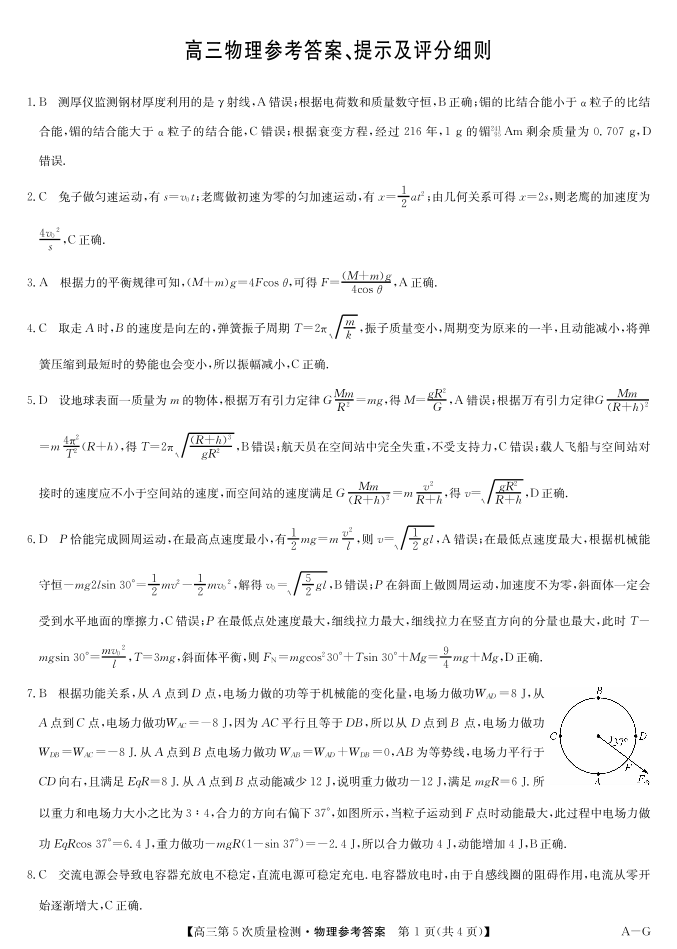 高三物理参考答案、提示及评分细则
1. B 测厚仪监测钢材厚度利用的是 γ 射线,A 错误;根据电荷数和质量数守恒,B 正确;镅的比结合能小于 α 粒子的比结
合能,镅的结合能大于 α 粒子的结合能,C 错误;根据衰变方程,经过 216 年,1 g 的镅²⁴¹₉₅Am 剩余质量为 0.707 g,D
错误.
2. C 兔子做匀速运动,有 s=v₀t;老鹰做初速为零的匀加速运动,有 x=1/2 at²;由几何关系可得 x=2s,则老鹰的加速度为
4v₀²/s,C 正确.
3. A 根据力的平衡规律可知,(M+m)g=4Fcos θ,可得 F=(M+m)g/4cos θ,A 正确.
4. C 取走 A 时,B 的速度是向左的,弹簧振子周期 T=2π√(m/k),振子质量变小,周期变为原来的一半,且动能减小,将弹
簧压缩到最短时的势能也会变小,所以振幅减小,C 正确.
5. D 设地球表面一质量为 m 的物体,根据万有引力定律 G Mm/R²=mg,得 M=gR²/G,A 错误;根据万有引力定律G Mm/(R+h)²
=m 4π²/T²(R+h),得 T=2π√((R+h)³/gR²),B 错误;航天员在空间站中完全失重,不受支持力,C 错误;载人飞船与空间站对
接时的速度应不小于空间站的速度,而空间站的速度满足 G Mm/(R+h)²=m v²/R+h,得 v=√(gR²/R+h),D 正确.
6. D P 恰能完成圆周运动,在最高点速度最小,有1/2 mg=m v²/l,则 v=√(1/2 gl),A 错误;在最低点速度最大,根据机械能
守恒-mg2lsin 30°=1/2 mv²-1/2 mv₀²,解得 v₀=√(5/2 gl),B 错误;P 在斜面上做圆周运动,加速度不为零,斜面体一定会
受到水平地面的摩擦力,C 错误;P 在最低点处速度最大,细线拉力最大,细线拉力在竖直方向的分量也最大,此时 T-
mgsin 30°=mv₀²/l,T=3mg,斜面体平衡,则 F_N=mgcos²30°+Tsin 30°+Mg=9/4 mg+Mg,D 正确.
7. B 根据功能关系,从 A 点到 D 点,电场力做的功等于机械能的变化量,电场力做功W_AD=8 J,从
A 点到 C 点,电场力做功W_AC=-8 J,因为 AC 平行且等于 DB,所以从 D 点到 B 点,电场力做功
W_DB=W_AC=-8 J. 从 A 点到 B 点电场力做功 W_AB=W_AD+W_DB=0,AB 为等势线,电场力平行于
CD 向右,且满足 EqR=8 J. 从 A 点到 B 点动能减少 12 J,说明重力做功-12 J,满足 mgR=6 J. 所
以重力和电场力大小之比为 3:4,合力的方向右偏下 37°,如图所示,当粒子运动到 F 点时动能最大,此过程中电场力做
功 EqRcos 37°=6.4 J,重力做功-mgR(1-sin 37°)=-2.4 J,所以合力做功 4 J,动能增加 4 J,B 正确.
B
C
D
37°
F
A
F合
8. C 交流电源会导致电容器充放电不稳定,直流电源可稳定充电. 电容器放电时,由于自感线圈的阻碍作用,电流从零开
始逐渐增大,C 正确.
【高三第 5 次质量检测·物理参考答案 第 1 页(共 4 页)】
A-G